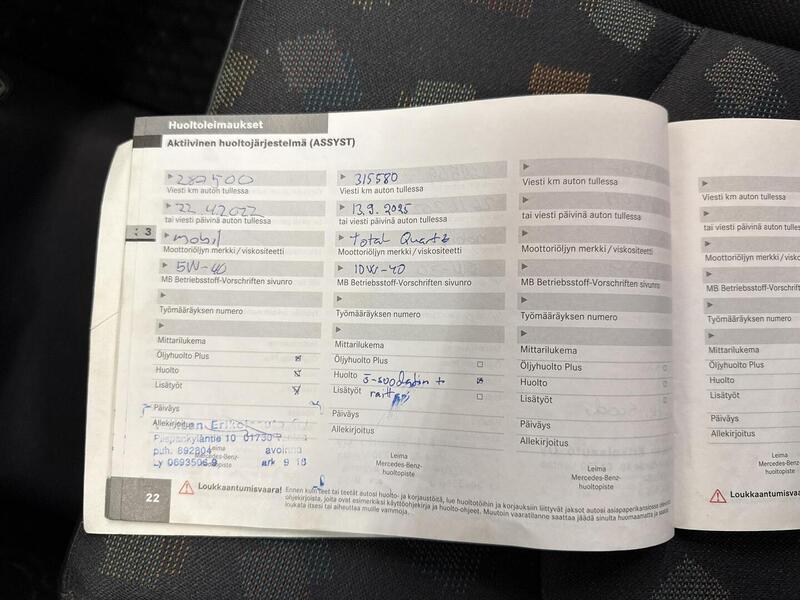 Huoltoleimaukset
Aktiivinen huoltojärjestelmä (ASSYST)
287500
Viesti km auton tullessa
22.4.2022
tai viesti päivinä auton tullessa
3
mobil
Moottoriöljyn merkki/viskositeetti
5W-40
MB Betriebsstoff-Vorschriften sivunro
Työmääräyksen numero
Mittarilukema
Öljyhuolto Plus
Huolto
Lisätyöt
Päiväys
Allekirjoitus
Piispankyläntie 10 01730
puh. 892804 avoinna
Ly 0693506-9 ark 9-18
Leima
Mercedes-Benz-
huoltopiste
315580
Viesti km auton tullessa
13.9.2025
tai viesti päivinä auton tullessa
Total Quartz
Moottoriöljyn merkki/viskositeetti
10W-40
MB Betriebsstoff-Vorschriften sivunro
Työmääräyksen numero
Mittarilukema
Öljyhuolto Plus
Huolto
Lisätyöt
Päiväys
Allekirjoitus
Leima
Mercedes-Benz-
huoltopiste
Viesti km auton tullessa
tai viesti päivinä auton tullessa
Moottoriöljyn merkki/viskositeetti
MB Betriebsstoff-Vorschriften sivunro
Työmääräyksen numero
Mittarilukema
Öljyhuolto Plus
Huolto
Lisätyöt
Päiväys
Allekirjoitus
Leima
Mercedes-Benz-
huoltopiste
22
Loukkaantumisvaara! Ennen kuin teet tai teetät autosi huolto- ja korjaustöitä, lue huoltotöihin ja korjauksiin liittyvät jaksot autosi asiapaperikansiossa olevista
ohjekirjoista, joita ovat esimerkiksi käyttöohjekirja ja huolto-ohjeet. Muutoin vaaratilanne saattaa jäädä sinulta huomaamatta ja saatat
loukata itsesi tai aiheuttaa muille vammoja.
Viesti km auton tullessa
tai viesti päivinä auton tullessa
Moottoriöljyn merkki/visko
MB Betriebsstoff-Vorschriften
Työmääräyksen numero
Mittarilukema
Öljyhuolto Plus
Huolto
Lisätyöt
Päiväys
Allekirjoitus
Loukkaantumisvaara